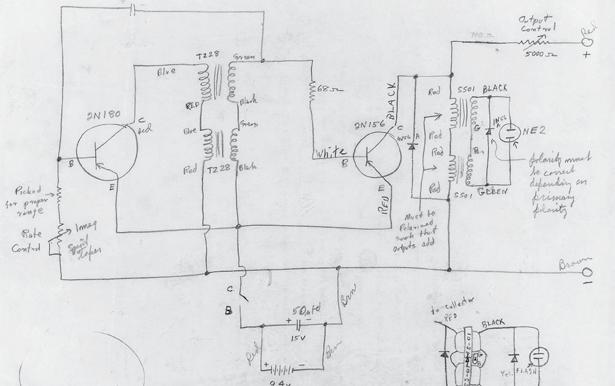 T228
Blue
Green
RED
Black
Blue
Green
Red
T228
Black
2N180
C
Red
B
E
68Ω
White
2N156
BLACK
C
B
E
RED
A
Output
Control
5000Ω
Red
+
Red
SSO1
BLACK
Red
Red
Red
G
SSO1
GREEN
NE2
polarity must
be correct
depending on
primary
polarity
Must be
Polarized
such that
outputs add
Picked
for proper
range
Rate
Control
1 meg
Brown
-
C
B
50 mfd
+
-
15V
Red
Brn
Brn
+
-
9.4v
to collector
RED
BLACK
FLASH